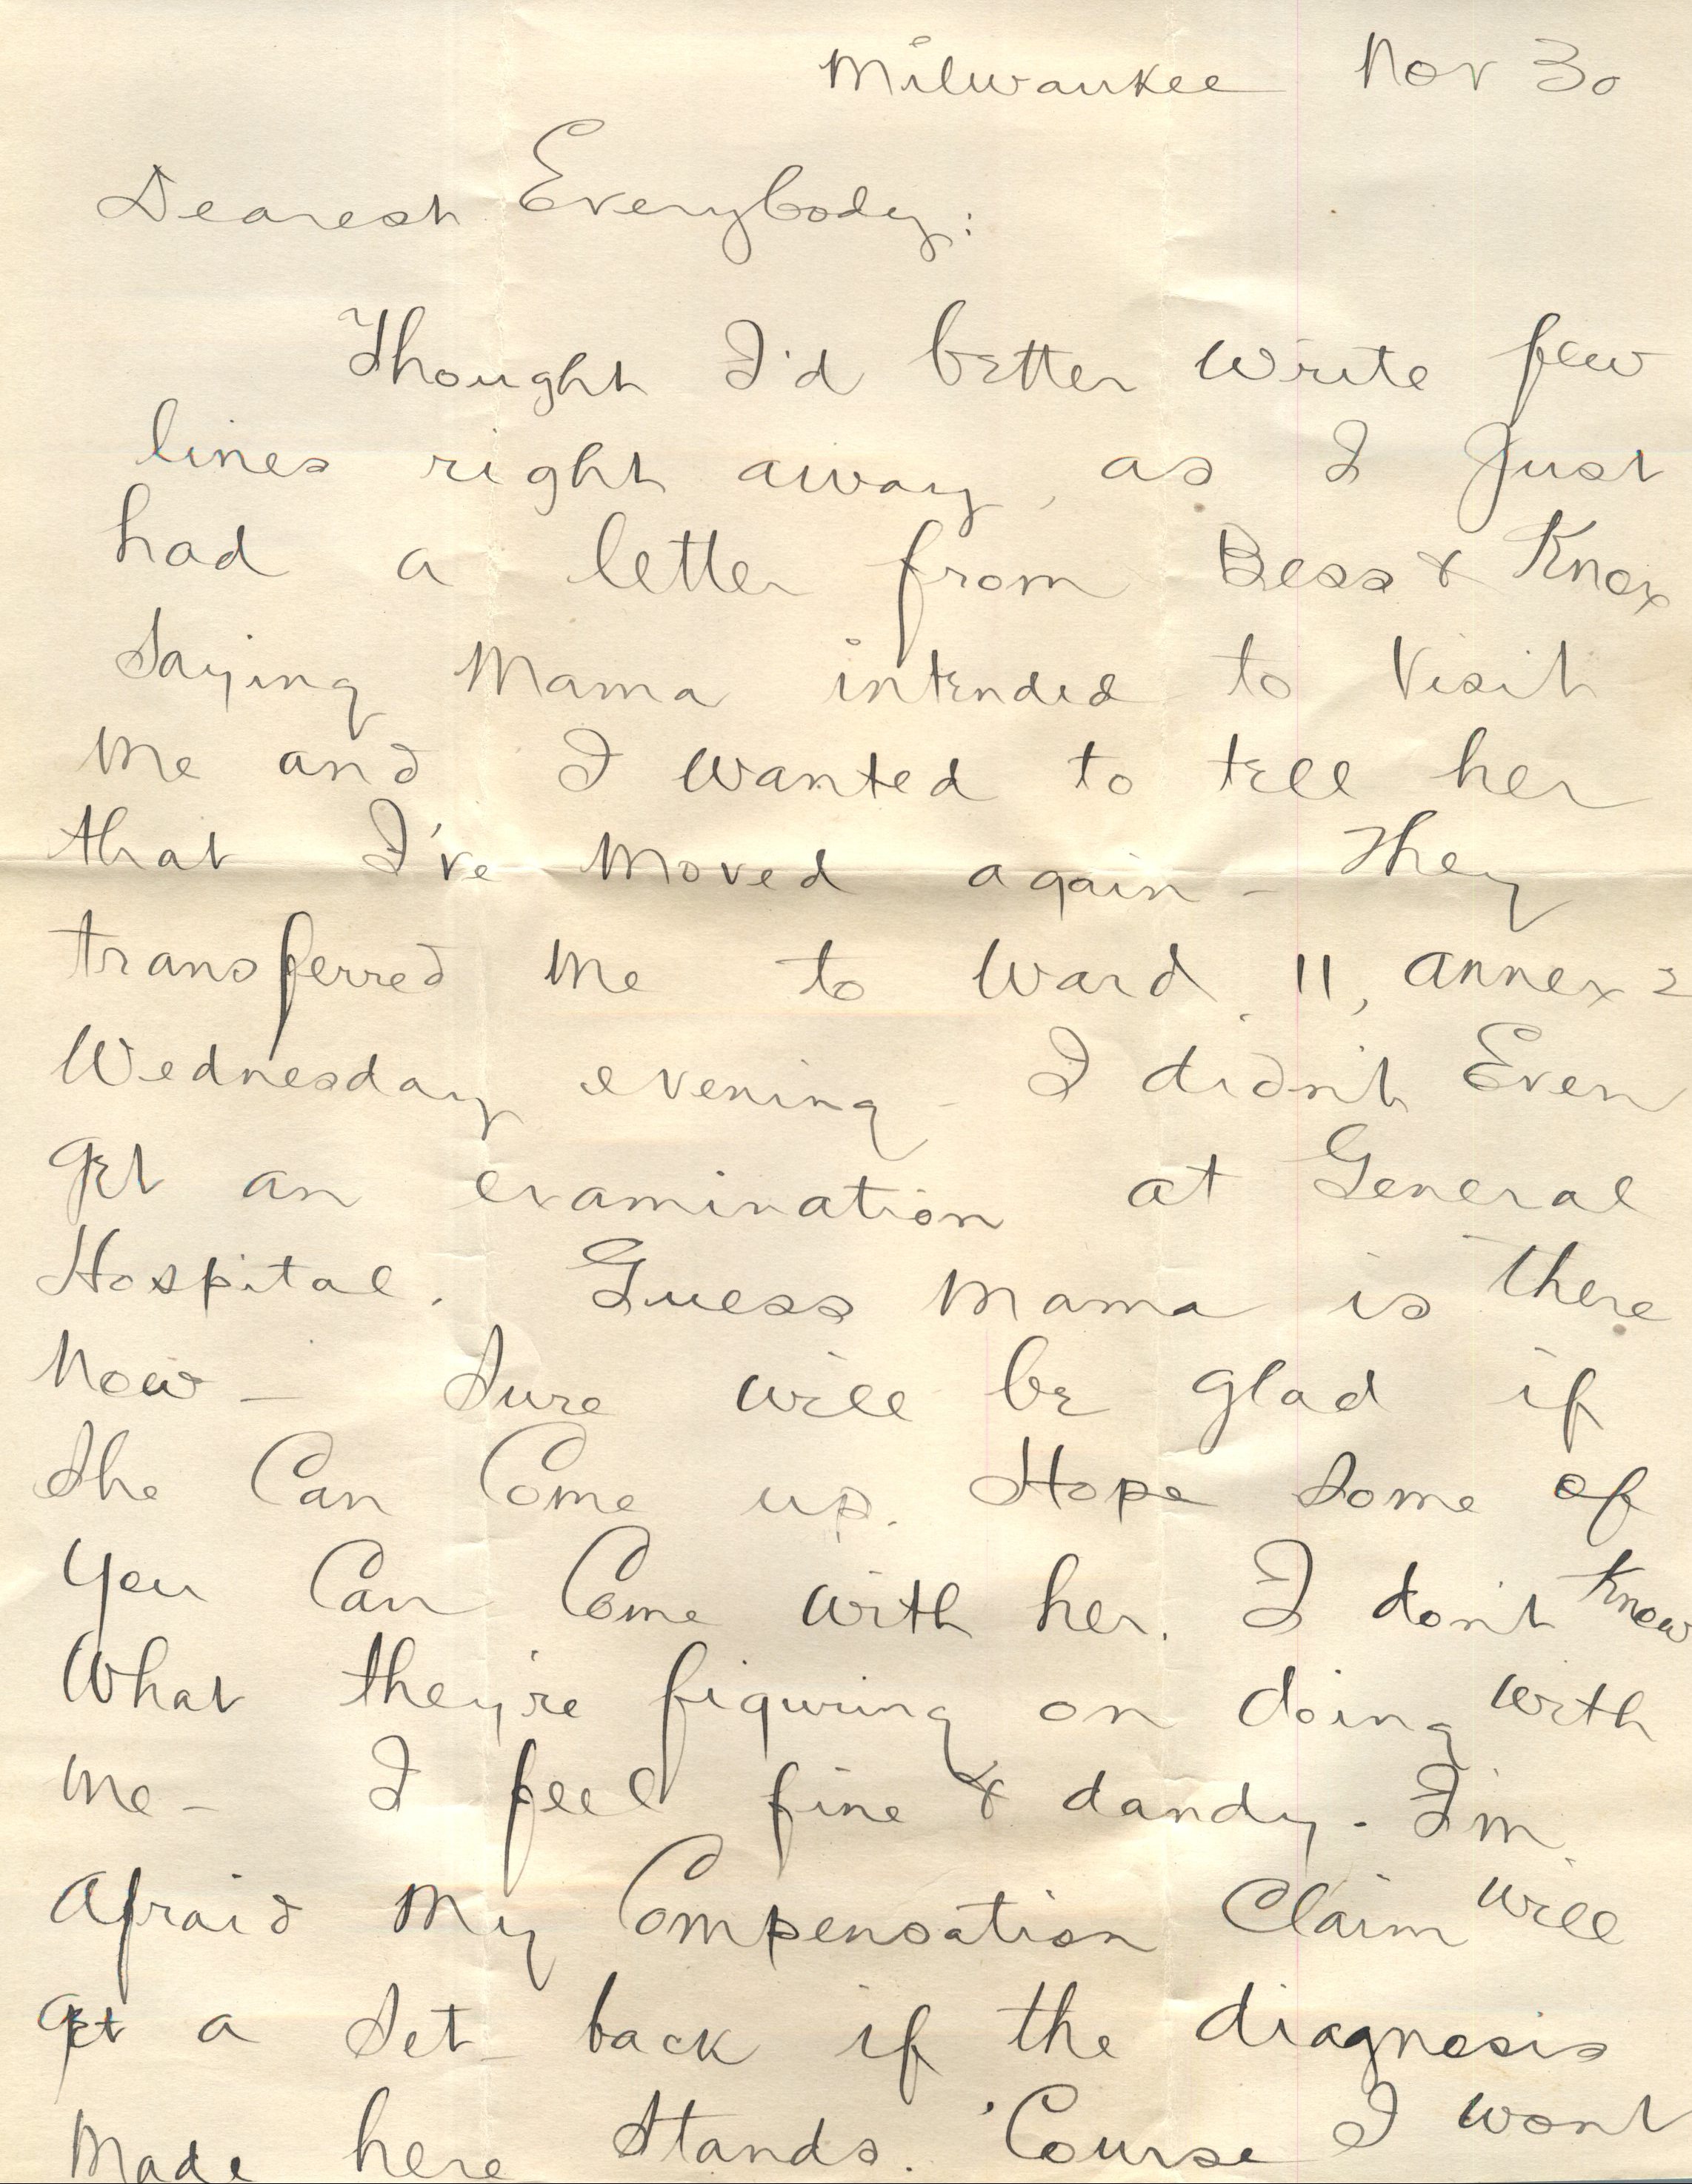 Milwaukee Nov 30
Dearest Everybody:
Thought I'd better write few
lines right away, as I Just
had a letter from Bess & Knox
Saying Mama intended to Visit
me and I wanted to tell her
that I've moved again - They
transferred me to Ward 11, Annex 2
Wednesday evening - I didn't Even
get an examination at General
Hospital. Guess Mama is there
Now - Sure will be glad if
She Can Come up. Hope Some of
You Can Come with her. I don't Know
What they're figuring on doing with
me - I feel fine & dandy. I'm
Afraid My Compensation Claim will
get a Set-back if the diagnosis
Made here Stands. 'Course I wont